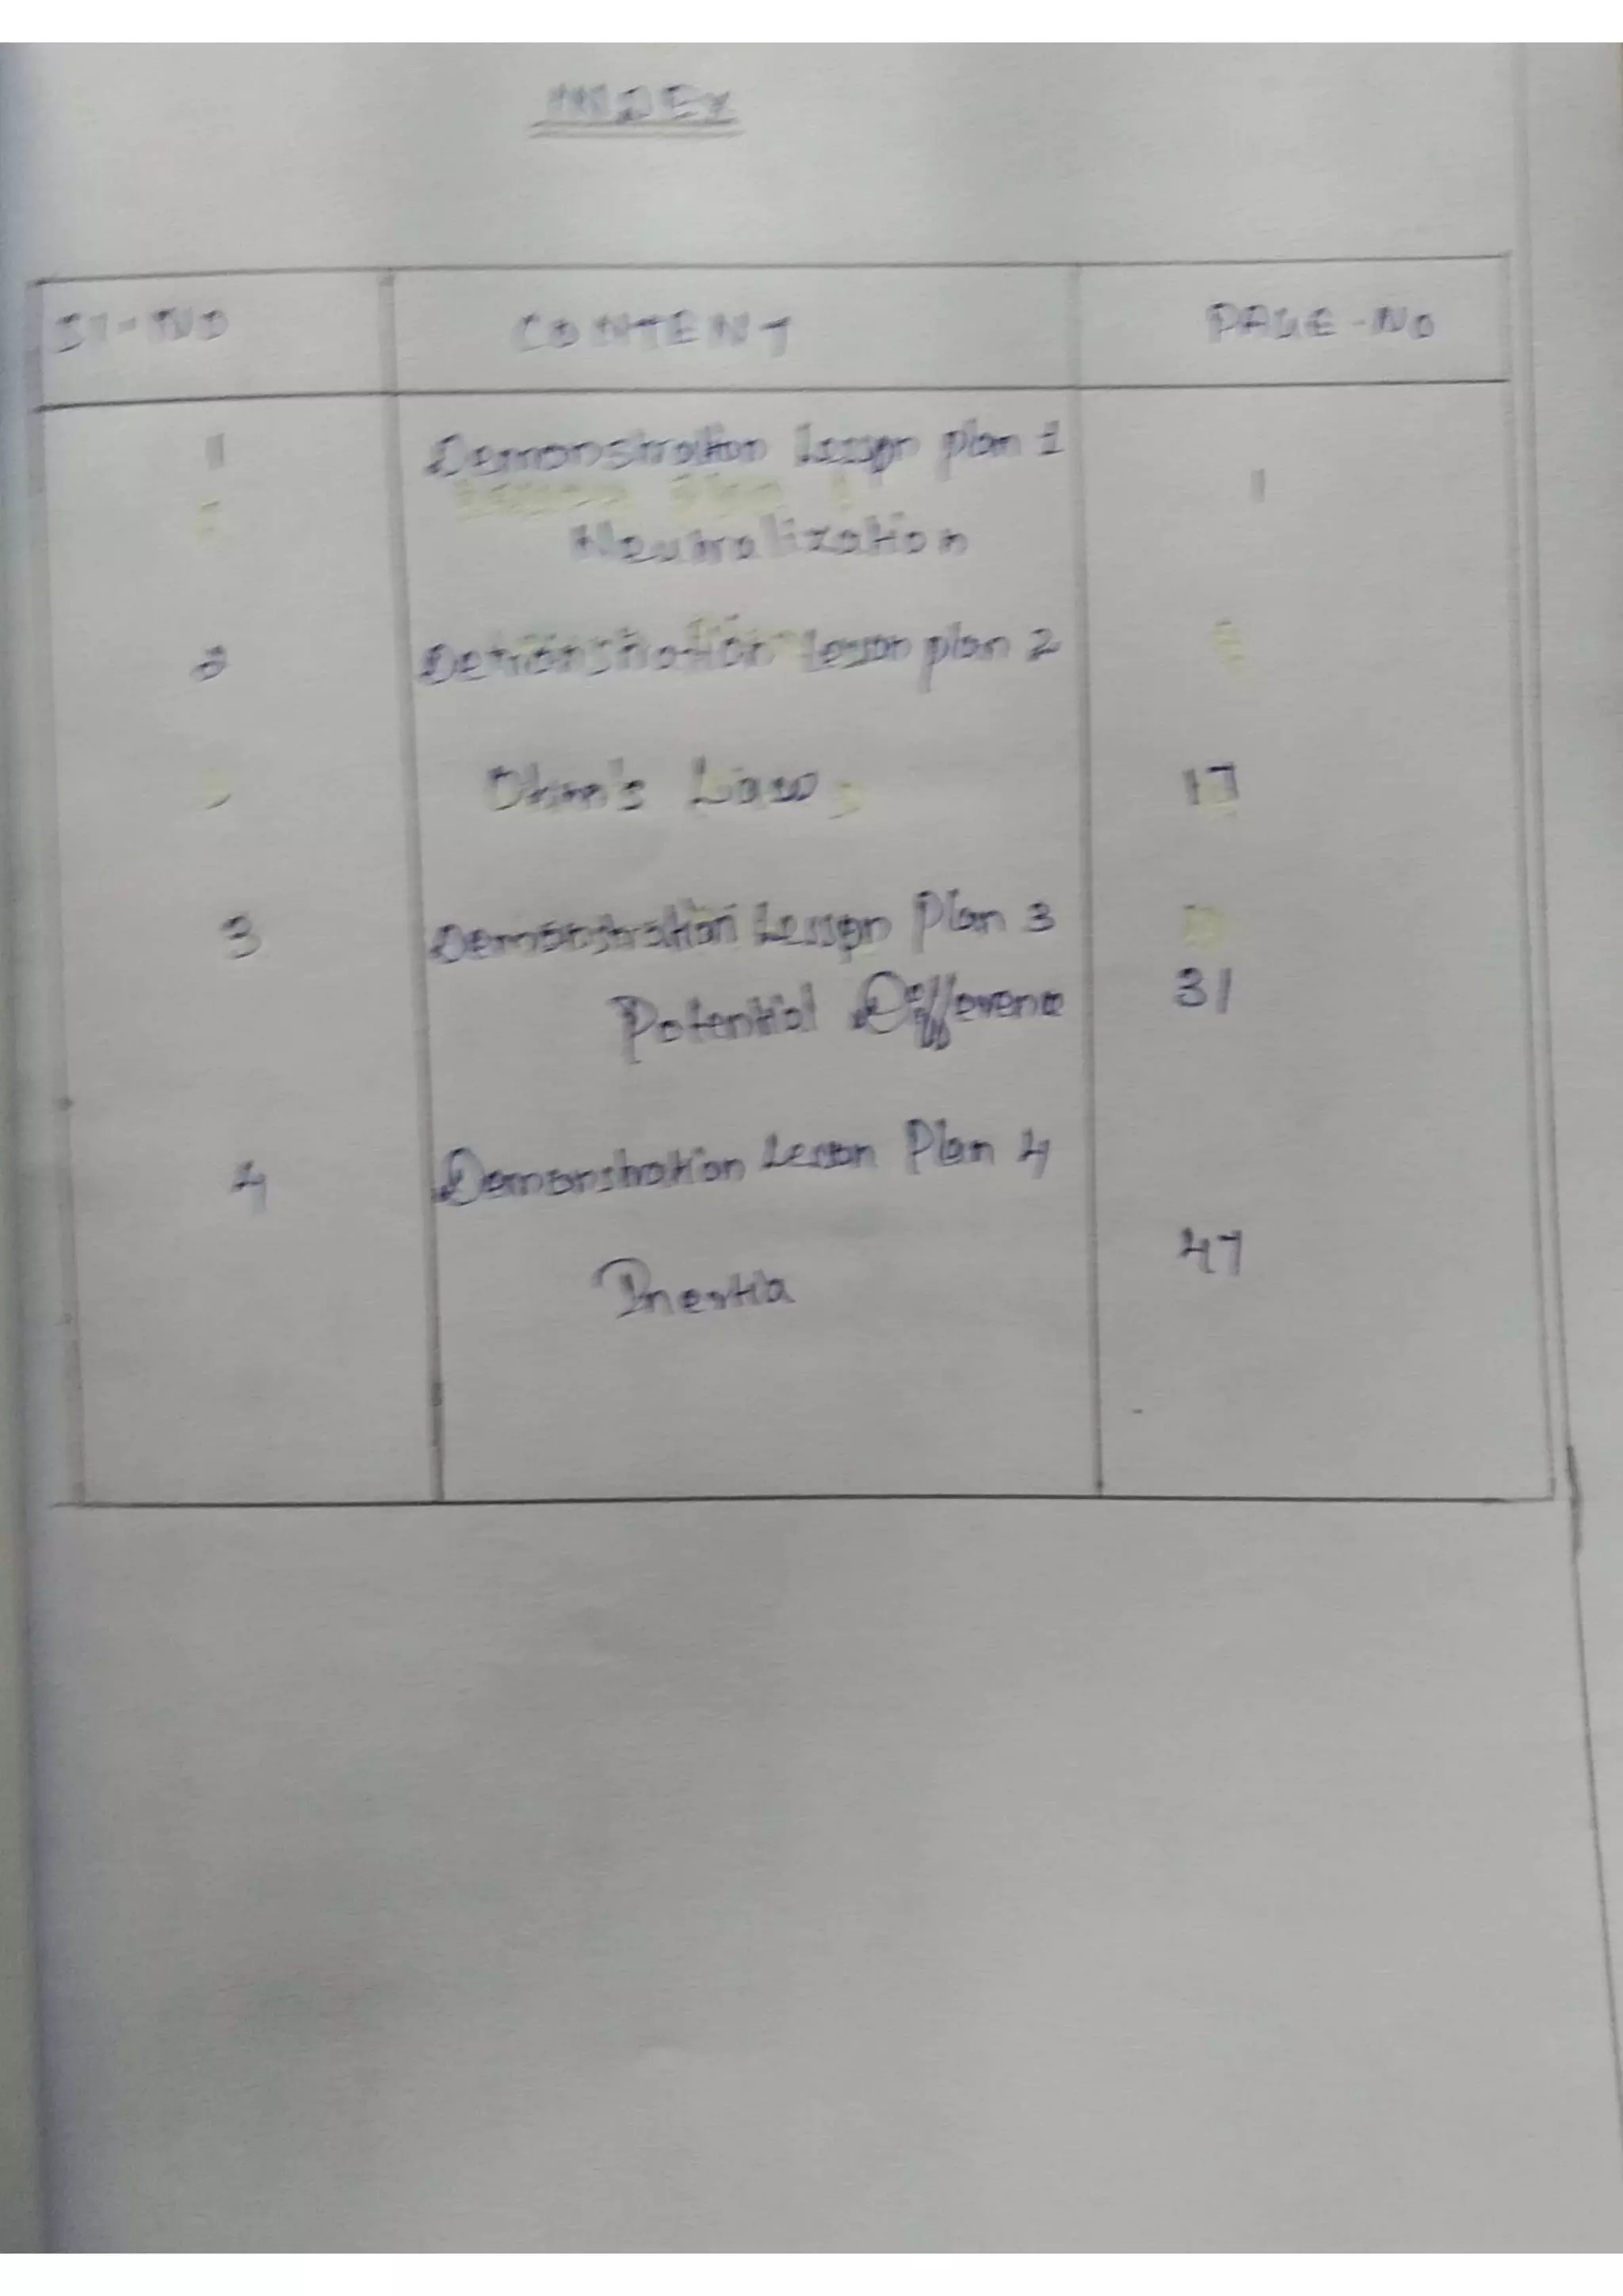 INDEX
Sl-NO CONTENT PAGE-NO
1 Demonstration Lesson plan 1
1
Neutralization
2 Demonstration Lesson plan 2
Ohm's Law 17
3 Demonstration Lesson Plan 3
Potential Difference 31
4 Demonstration Lesson Plan 4
47
Inertia